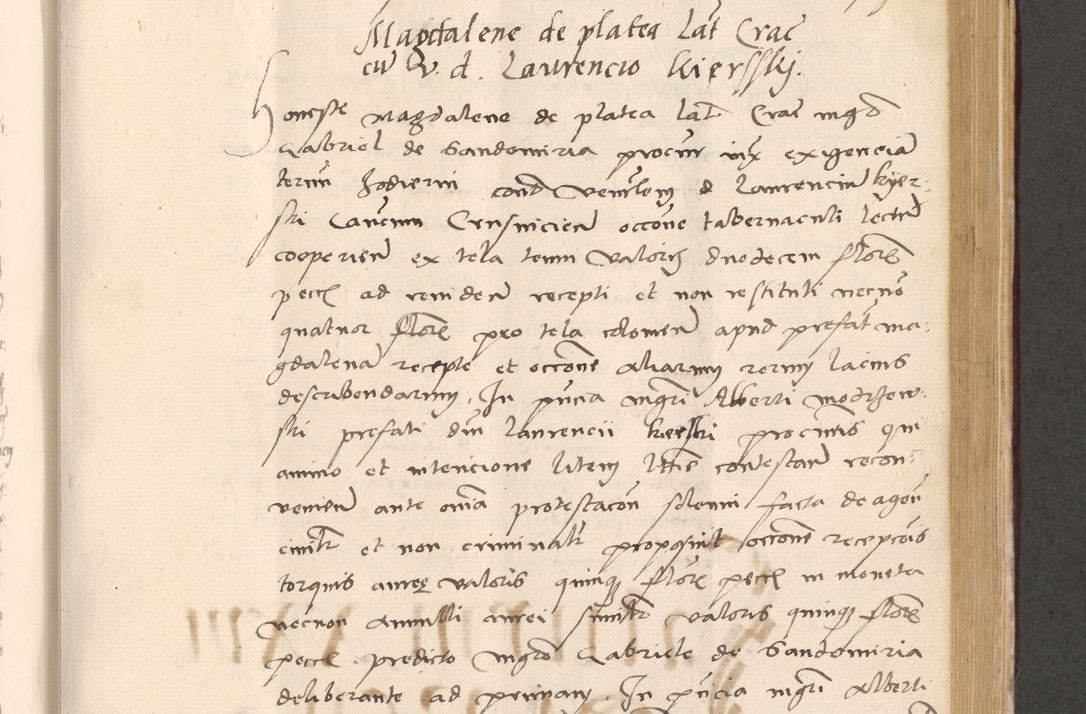 Magdalene de platea Lat Crac
cu V. d. Laurencio Kiersskj.
Honeste Magdalene de platea lat Crac mgro
Gabriel de Sandomiria procur exigencia
termi hodierni contra Venlem d Laurencium Kyer-
ski Canonicum Crusvicien occone tabernaculi lecti
cooperien ex tela tenui valoris duodecem flore
pecc ad videndum recepti et non restituti necno
quatuor flore pro tela colomen apud prefata ma-
gdalena recepte et occone aliarum rerum lacius
describendarum. In pncia mgri Alberti Modrzew-
ski prefati dni Laurencii Kierski procuris qui
animo et intencione litem lttis contestan recon-
venien ante omia protestacon solenni facta de agen
civiltr et non criminaltr proposuit occone recepcois
torquis auree valoris quinque flore pecc in moneta
necnon annulli aurei similtr valoris quinque flore
pecc. predicto mgro Gabriele de Sandomiria
deliberante ad primam. In pncia mgri Alberti